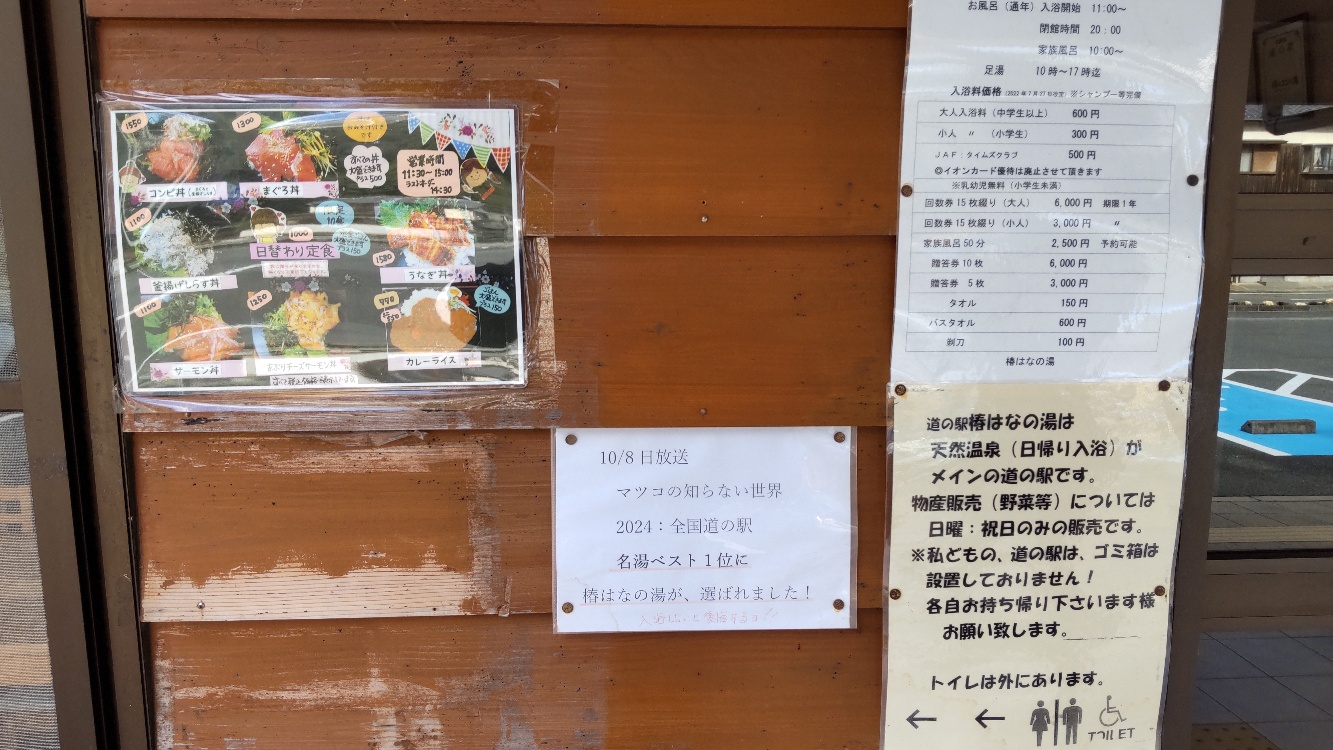 1550
コンビ丼
1300
まぐろ丼
すべての丼
大盛できます
プラス500
営業時間
11:30～15:00
ラストオーダー
14:30
1100
釜揚げしらす丼
1000
日替わり定食
1580
うなぎ丼
1100
サーモン丼
1250
あぶりチーズサーモン丼
990
カレーライス
大盛できます
プラス150
10/8 日放送
マツコの知らない世界
2024：全国道の駅
名湯ベスト１位に
椿はなの湯が、選ばれました！
お風呂（通年）入浴開始 11:00～
閉館時間 20：00
家族風呂 10:00～
足湯 10時～17時迄
入浴料価格（2022年7月27日改定）※シャンプー等完備
大人入浴料（中学生以上） 600円
小人 〃 （小学生） 300円
JAF：タイムズクラブ 500円
◎イオンカード優待は廃止させて頂きます
※乳幼児無料（小学生未満）
回数券15枚綴り（大人） 6,000円 期限1年
回数券15枚綴り（小人） 3,000円 〃
家族風呂50分 2,500円 予約可能
贈答券10枚 6,000円
贈答券 5枚 3,000円
タオル 150円
バスタオル 600円
剃刀 100円
椿はなの湯
道の駅椿はなの湯は
天然温泉（日帰り入浴）が
メインの道の駅です。
物産販売（野菜等）については
日曜：祝日のみの販売です。
※私どもの、道の駅は、ゴミ箱は
設置しておりません！
各自お持ち帰り下さいます様
お願い致します。
トイレは外にあります。
TOILET